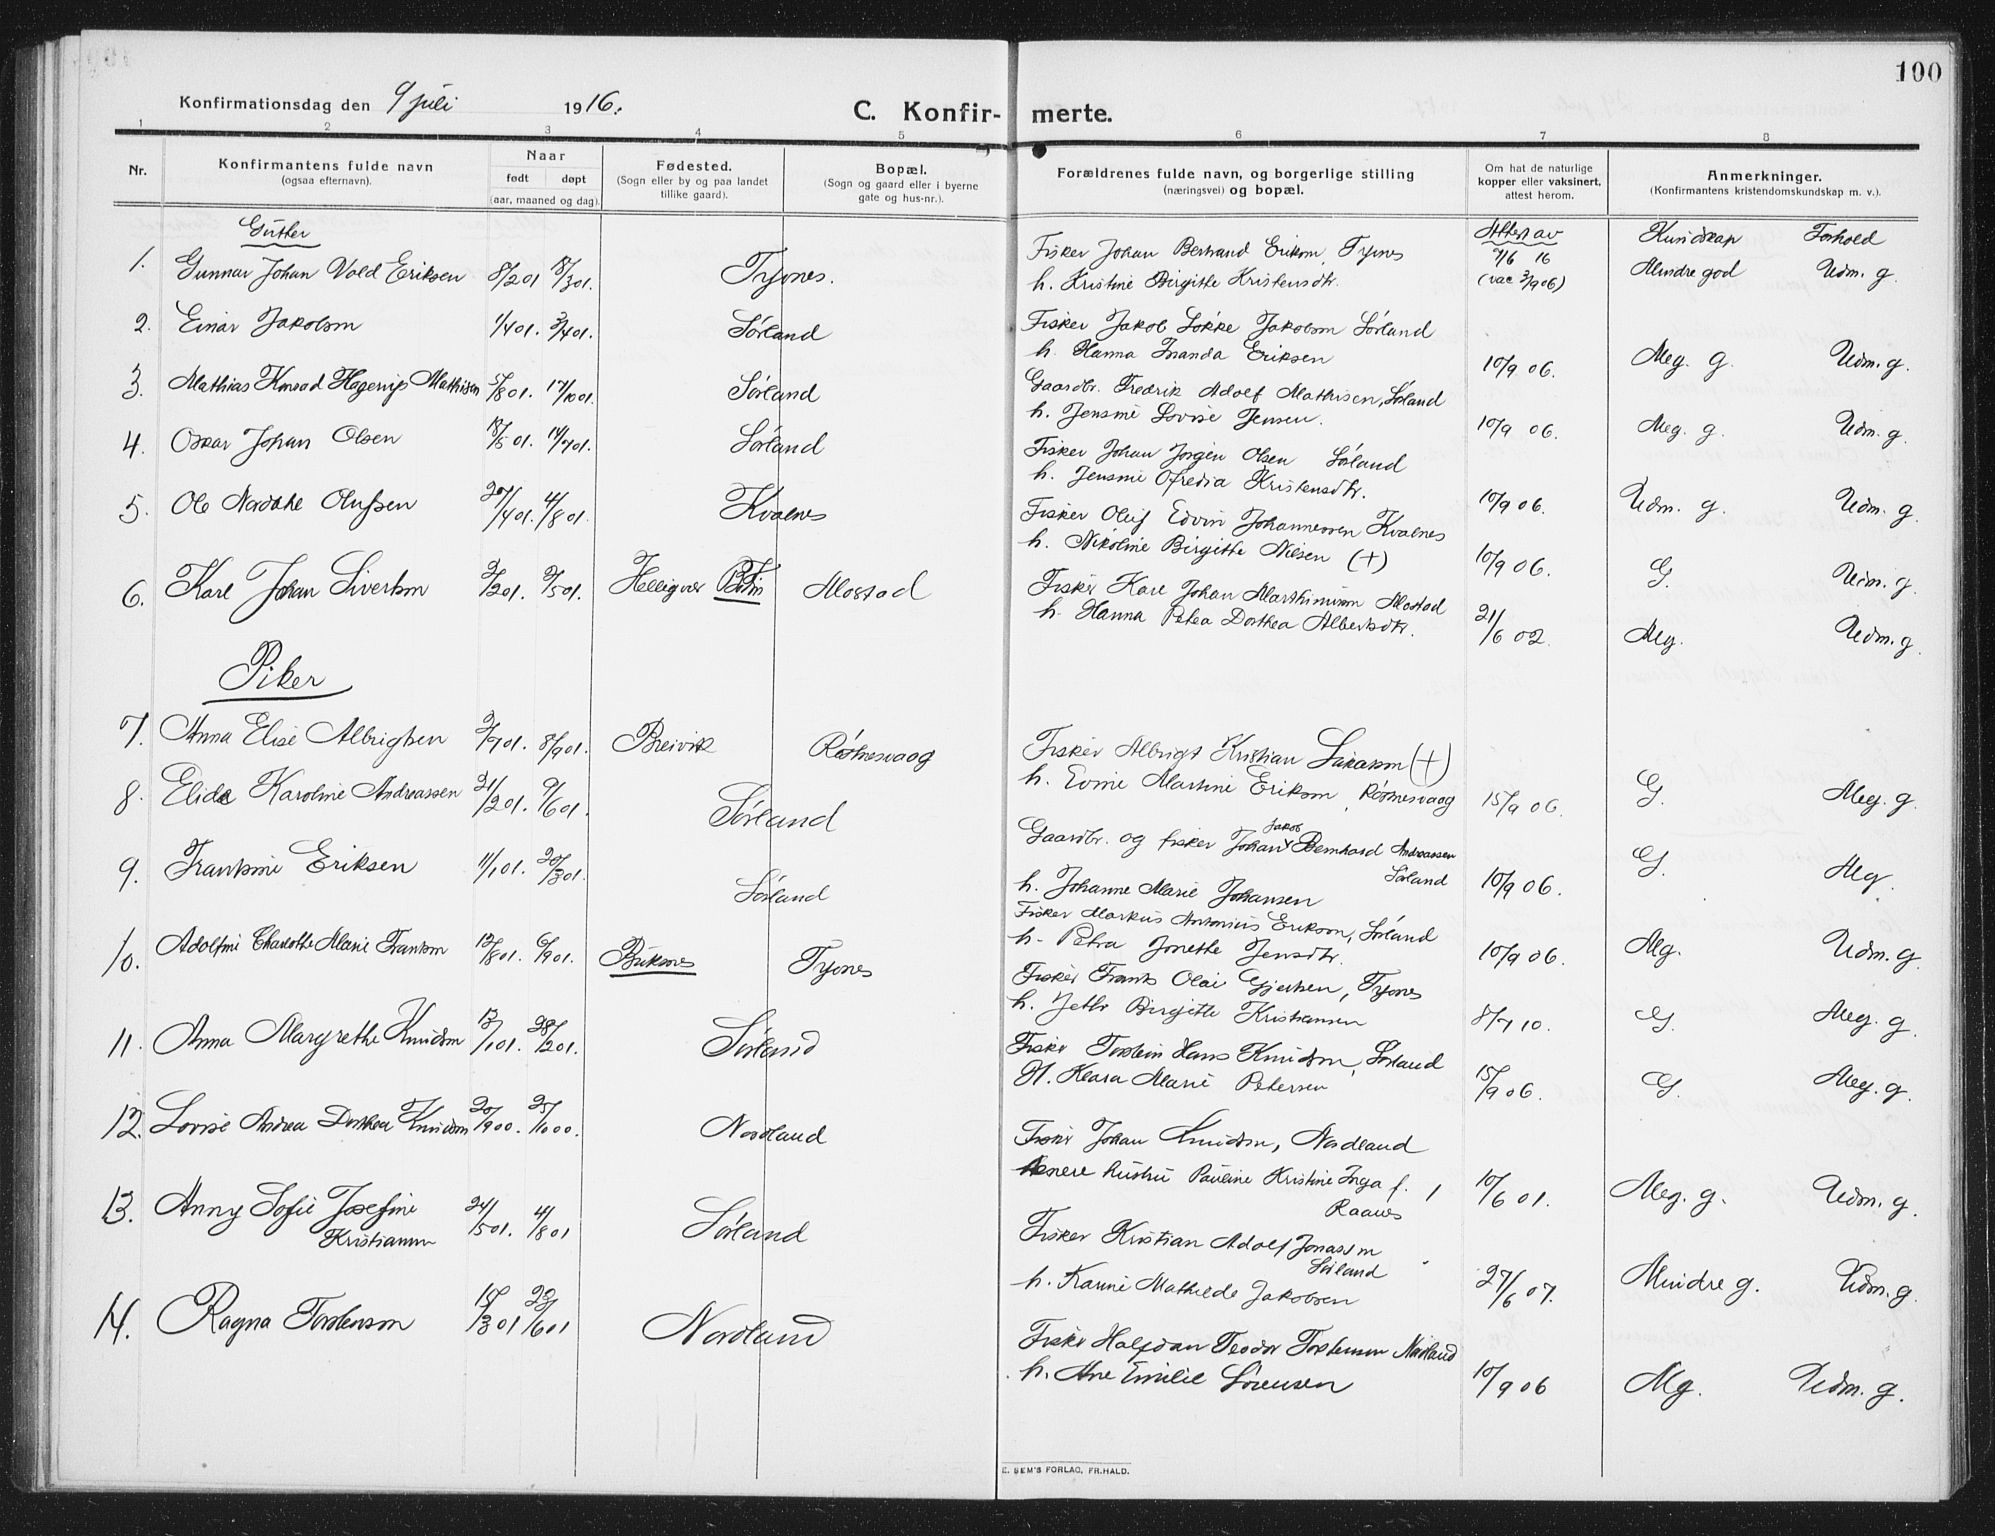 100
Konfirmationsdag den 9 juli 1916.
C. Konfirmerte.
1 2 3 4 5 6 7 8
Nr.
Konfirmantens fulde navn
(ogsaa efternavn).
Naar
født døpt
(aar, maaned og dag).
Fødested.
(Sogn eller by og paa landet
tillike gaard).
Bopæl.
(Sogn og gaard eller i byerne
gate og hus-nr.).
Forældrenes fulde navn, og borgerlige stilling
(næringsvei) og bopæl.
Om hat de naturlige
kopper eller vaksinert,
attest herom.
Anmerkninger.
(Konfirmantens kristendomskundskap m. v.).
Gutter
Attest av
Kundskap Forhold
1. Gunnar Johan Vold Eriksen 8/2 01 18/3 01. Tyvnes.
Fisker Johan Bertrand Eriksen, Tyvnes
h. Kristine Birgitte Kristensdtr.
7/6 16
(vac 3/9 06)
Mindre god Udm. g.
2. Einar Jakobsen 1/4 01. 3/4 01. Sørland
Fisker Jakob Løkke Jakobsen Sørland
h. Hanna Inanda Eriksen
10/9 06. Meg. g. Udm. g.
3. Mathias Konrad Hagerup Mathisen 5/8 01. 17/10 01. Sørland
Gaardbr. Fredrik Adolf Mathisen, Sørland
h. Jensine Lovise Jensen.
10/9 06. Meg. g. Udm. g.
4. Oskar Johan Olsen 18/5 01. 14/7 01. Sørland
Fisker Johan Jørgen Olsen Sørland
h. Jensine Ofredia Kristensdtr.
10/9 06. Udm. g. Udm. g.
5. Ole Nordahl Olufsen 27/4 01. 4/8 01. Kvalnes
Fisker Oluf Edvin Johannessen Kvalnes
h. Nikoline Birgitte Nilsen (+)
10/9 06. G. Udm. g.
6. Karl Johan Sivertsen 3/2 01. 9/5 01. Helligvær Bodin Mostad
Fisker Karl Johan Marthinussen Mostad
h. Hanna Petra Dorthea Albertsdtr.
21/6 02. Mg. Udm. g.
Piker
7. Anna Elise Albrigtsen 3/7 01. 8/9 01. Breivik Røsnesvaag
Fisker Albrigt Kristian Sakasen (+)
h. Evine Martine Eriksen, Røsnesvaag
15/9 06. G. Meg. g.
8. Elida Karoline Andreassen 21/2 01. 9/6 01. Sørland
Gaardbr. og fisker Johan Jakob Bernhard Andreassen
Sørland
h. Johanne Marie Johansen
10/9 06. G. Mg.
9. Frantsine Eriksen 11/1 01. 20/3 01. Sørland
Fisker Markus Antonius Eriksen, Sørland
h. Petra Jonette Jensdtr.
10/9 06. Mg. Udm. g.
10. Adolfine Charlotte Marie Frantsen 12/8 01. 6/9 01. Buksnes Tyvnes
Fisker Frants Olai Gjertsen, Tyvnes
h. Birgitte Kristiansen
8/7 10. G. Meg. g.
11. Anna Margrethe Knudsen 13/1 01. 28/2 01. Sørland
Fisker Torstein Hans Knudsen, Sørland
H. Klara Marie Petersen
15/9 06. G. Meg. g.
12. Lovise Andrea Dorthea Knudsen 20/9 00. 25/10 00. Nordland
Fisker Johan Knudsen, Nordland
senere hustru Pauline Kristine Inga f.
Raanes
10/6 01. Meg. g. Udm. g.
13. Anny Sofie Josefine
Kristiansen 24/5 01. 4/8 01 Sørland
Fisker Kristian Adolf Jonassen
Sørland
h. Karine Mathilde Jakobsen
27/6 07. Mindre g. Udm. g.
14. Ragna Torstenson 15/3 01 29/6 01 Nordland
Fisker Halfdan Teodor Torstensen Nordland
h. Ane Emilie Sørensen
10/9 06 Mg. Udm. g.
E. SEM'S FORLAG, FR.HALD.